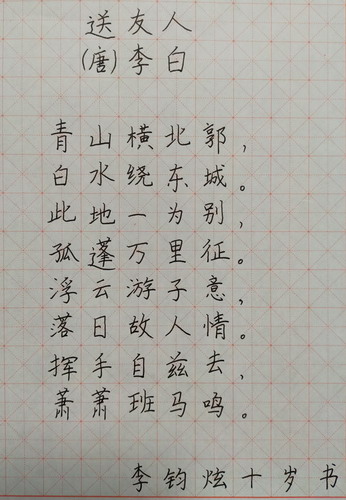 送友人
(唐)李白
青山横北郭，
白水绕东城。
此地一为别，
孤蓬万里征。
浮云游子意，
落日故人情。
挥手自兹去，
萧萧班马鸣。
李钧炫十岁书